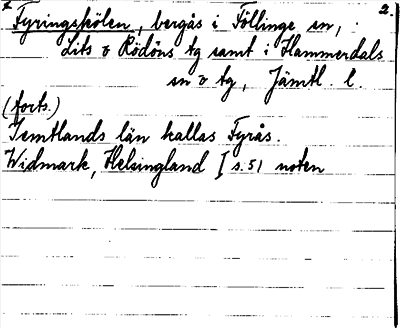 2.
Fyringshölen, bergås i Föllinge sn,
Lits o Rödöns tg samt i Hammerdals
sn o tg, Jämtl. l.
(forts.)
Jemtlands län kallas Fyrås.
Widmark, Helsingland I s. 51 noten